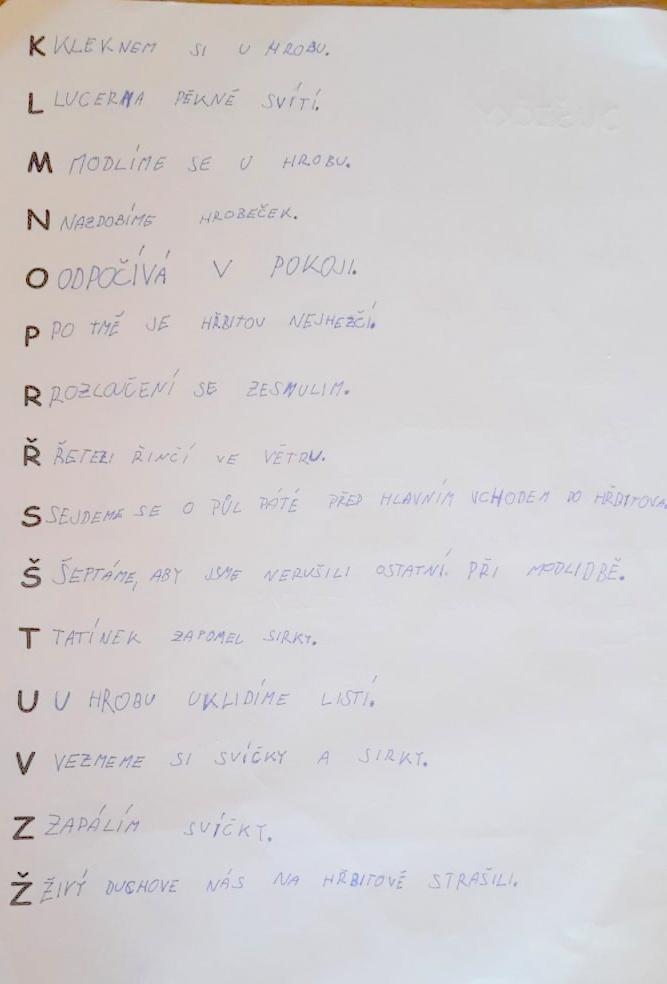 K KLEKNEM SI U HROBU.
L LUCERNA PĚKNĚ SVÍTÍ.
M MODLÍME SE U HROBU.
N NAZDOBÍME HROBEČEK.
O ODPOČÍVÁ V POKOJI.
P PO TMĚ JE HŘBITOV NEJHEZČÍ.
R ROZLOUČENÍ SE ZESNULIM.
Ř ŘETEZI ŘINČÍ VE VĚTRU.
S SEJDEME SE O PŮL PÁTÉ PŘED HLAVNÍM VCHODEM DO HŘBITOVA.
Š ŠEPTÁME, ABY JSME NERUŠILI OSTATNÍ PŘI MODLIDBĚ.
T TATÍNEK ZAPOMEL SIRKY.
U U HROBU UKLIDÍME LISTÍ.
V VEZMEME SI SVÍČKY A SIRKY.
Z ZAPÁLÍM SVÍČKY.
Ž ŽIVÝ DUCHOVE NÁS NA HŘBITOVĚ STRAŠILI.